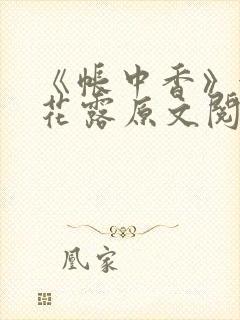 《帐中香》
花露原文阅
凰家